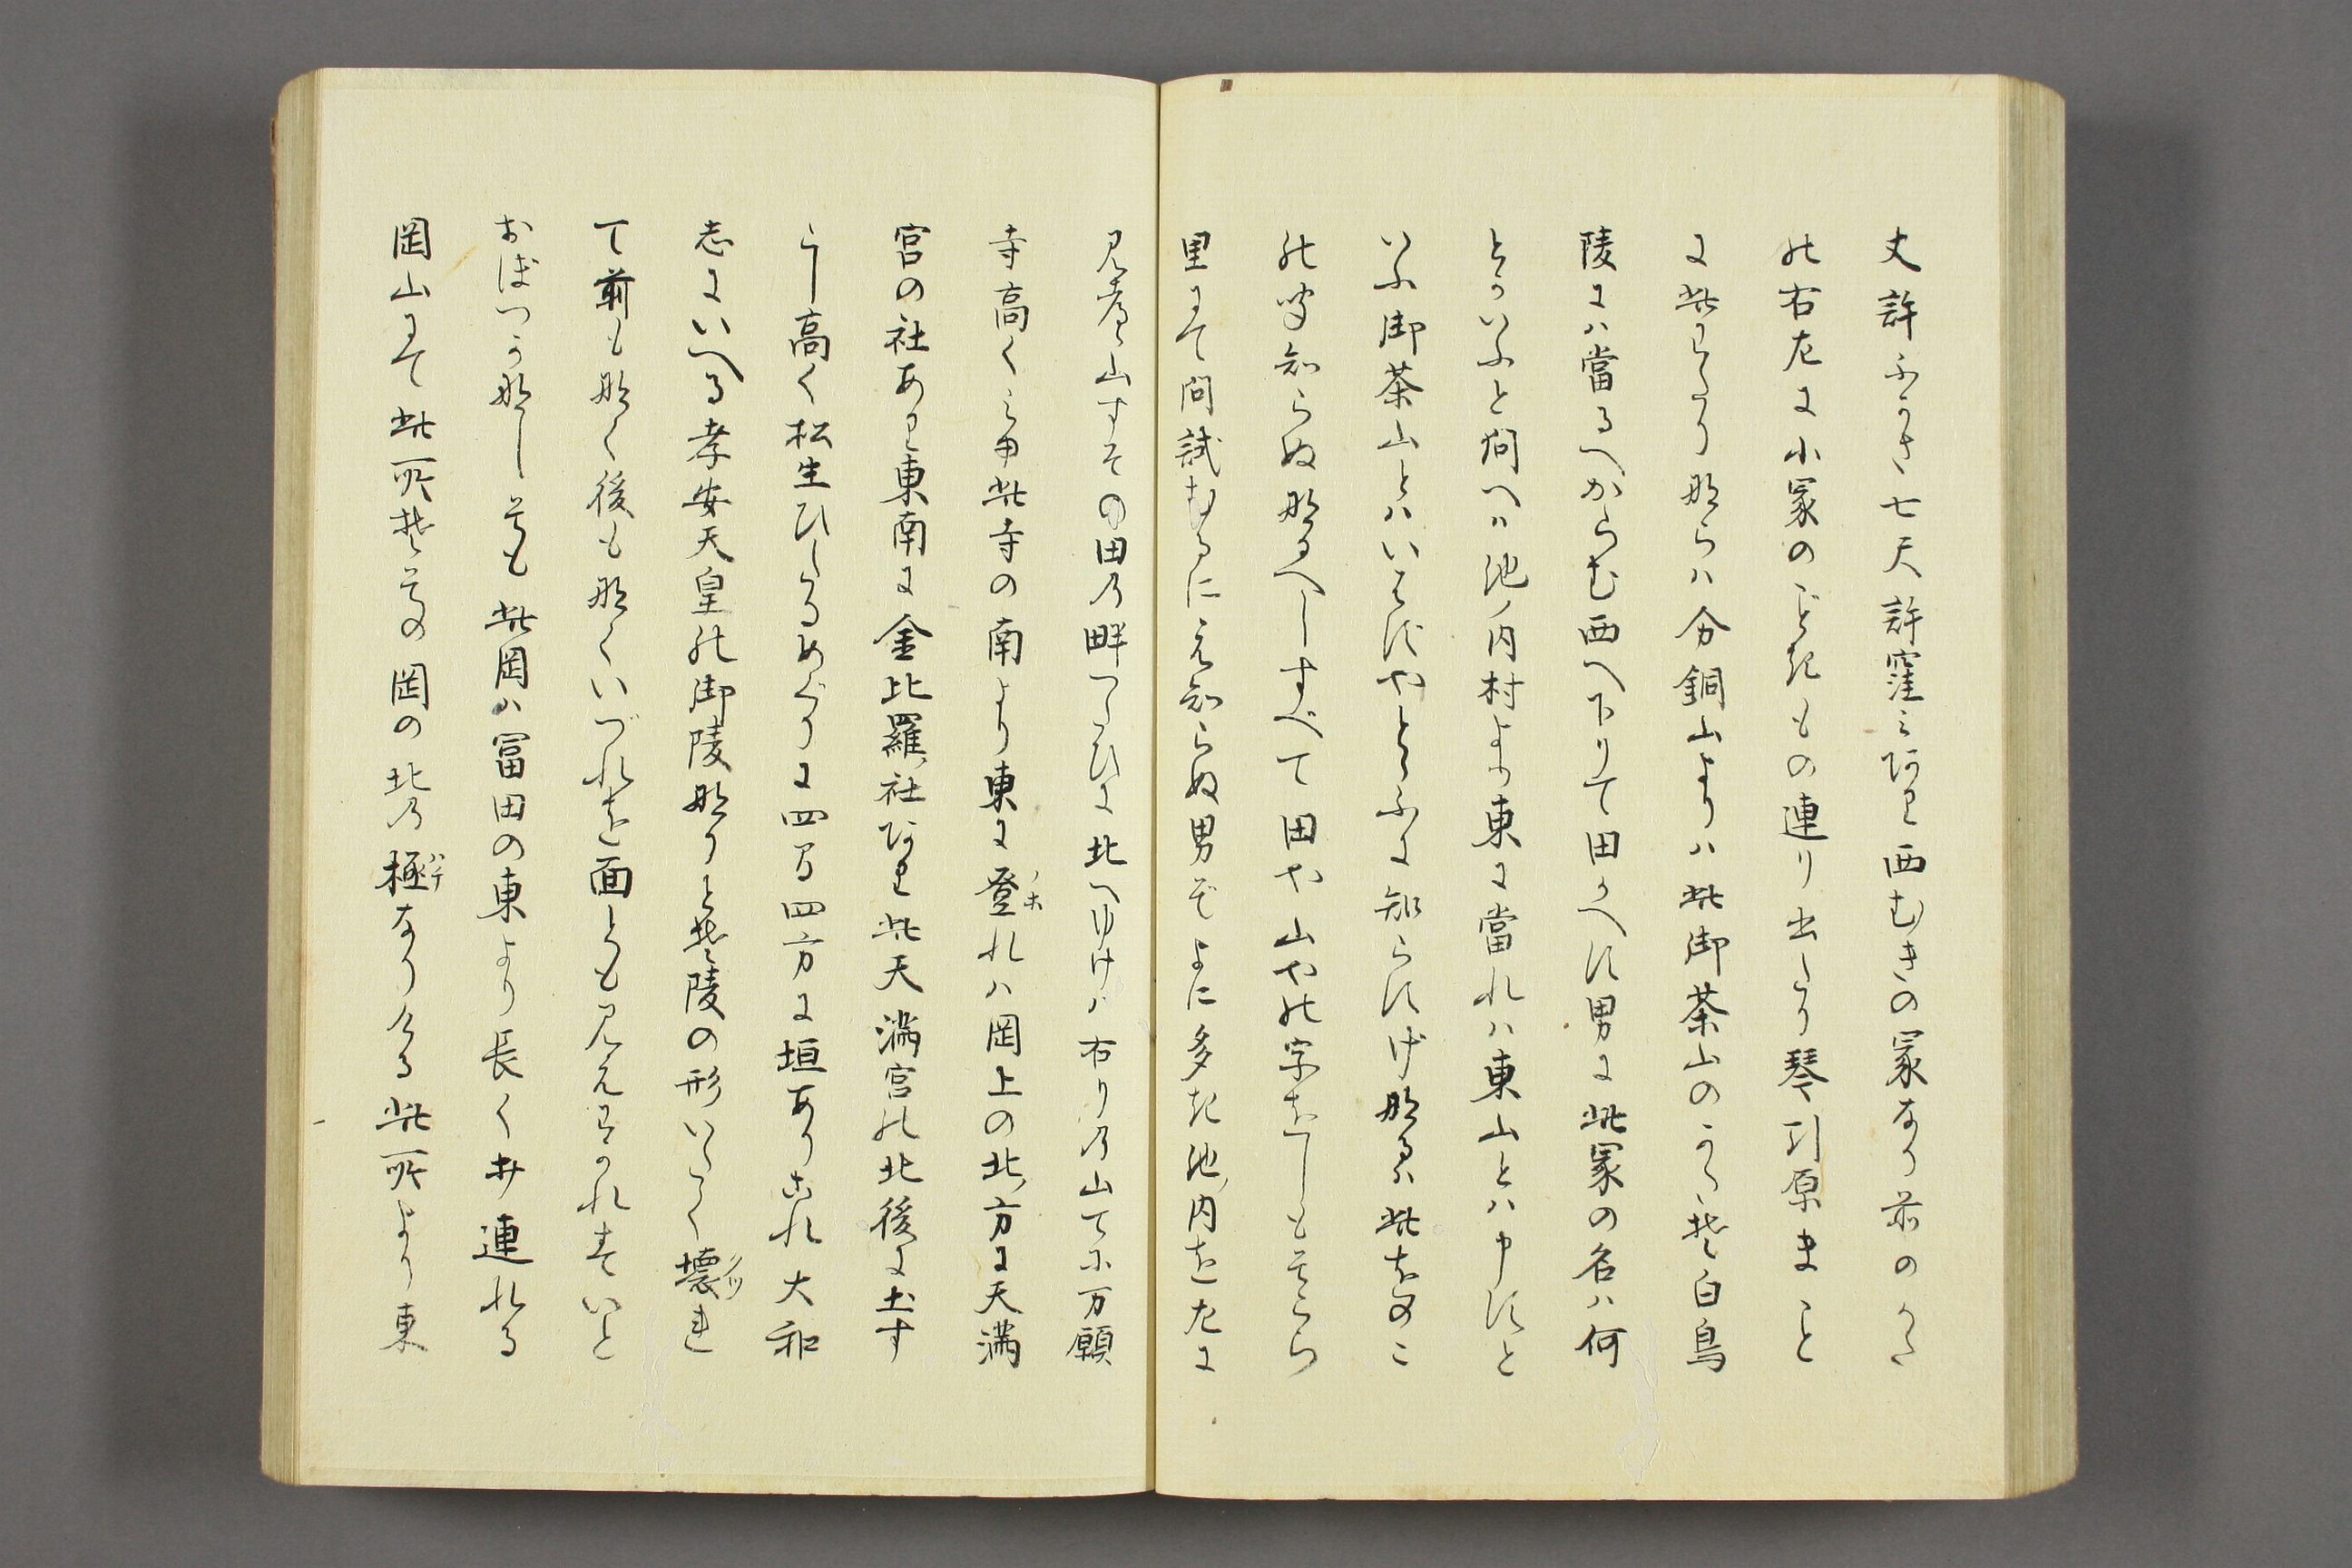 丈許ふかさ七尺許窪ミ阿り西むきの冢なり前のかた
能右左に小冢のごときもの連り出たり琴引原まこと
に此わたり那らハ分銅山よりハ此御茶山のかた楚白鳥
陵にハ當るへからむ西へ下りて田かへす男に此冢の名ハ何
とかいふと問へハ池ノ内村より東に當れハ東山とハ申すと
いふ御茶山とハいはすやととふに知らすげ那るハ此をのこ
能字知らぬ那るへしすべて田や山や能字をしもそら
里にて問試むるにえ知らぬ男ぞよに多き池ノ内を左に
見寺山すその田乃畔つたひに北へゆけハ右り乃山てに万願
寺高くミ由此寺の南より東に登れハ岡上の北ノ方に天満
宮の社あり東南に金比羅ノ社阿り此天満宮能北後にすこ
し高く松生ひしたるめぐりに四百四方に垣あり古れ大和
志にいへる孝安天皇能御陵那りと楚陵の形いたく壊れ
て前も那く後も那くいづれを面とも見えわかれすいと
おぼつか那しそも此岡ハ冨田の東より長く連れる
岡山にて此所楚その岡の北乃極なりける此所より東